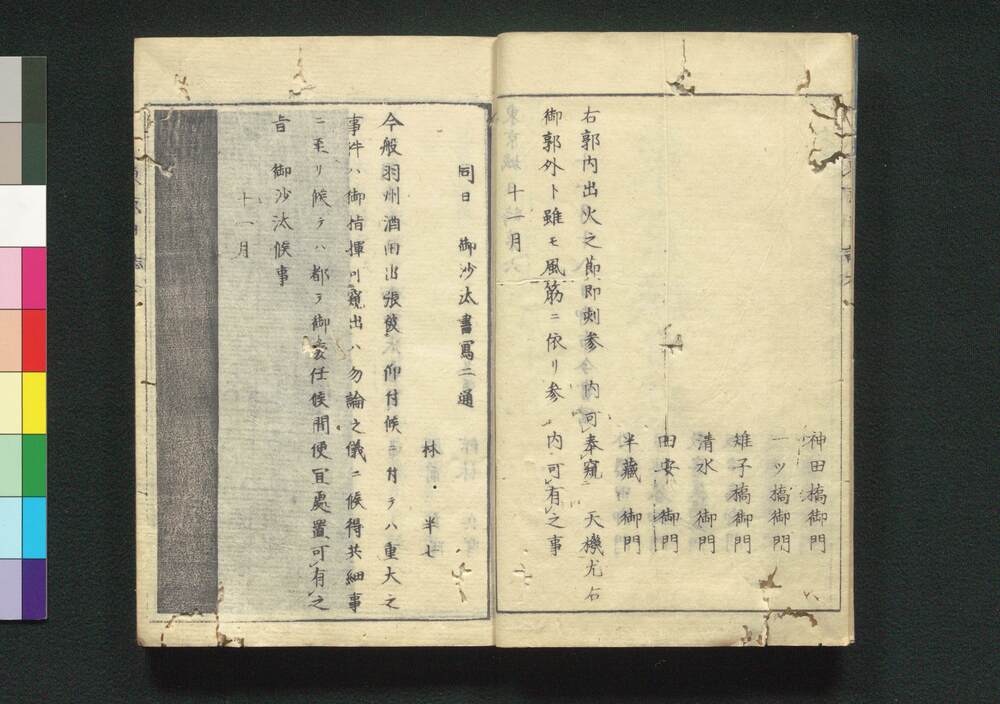 神田橋御門
一ツ橋御門
雉子橋御門
清水 御門
田安 御門
半藏 御門
右郭内出火之節即刻参 内可奉窺 天機尤右
御郭外ト雖モ風筋ニ依リ参 内可有之事
十一月
同日 御沙汰書寫二通
林 半七
今般羽州酒田出張被 仰付候ニ付テハ重大之
事件ハ御指揮可窺出ハ勿論之儀ニ候得共細事
ニ至リ候テハ都テ御委任候間便宜處置可有之
旨 御沙汰候事
十一月